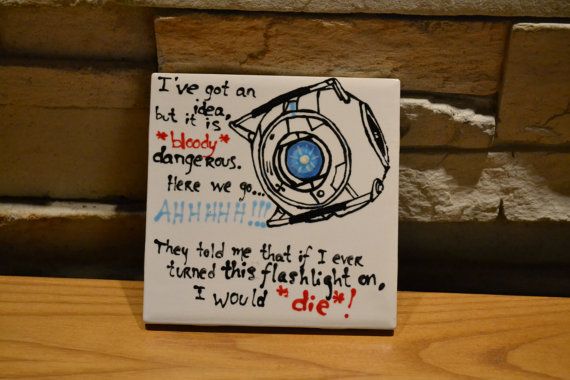 I've got an
idea,
but it is
*bloody*
dangerous.
Here we go...
AHHHHH!!!
They told me that if I ever
turned this flashlight on,
I would *die*!